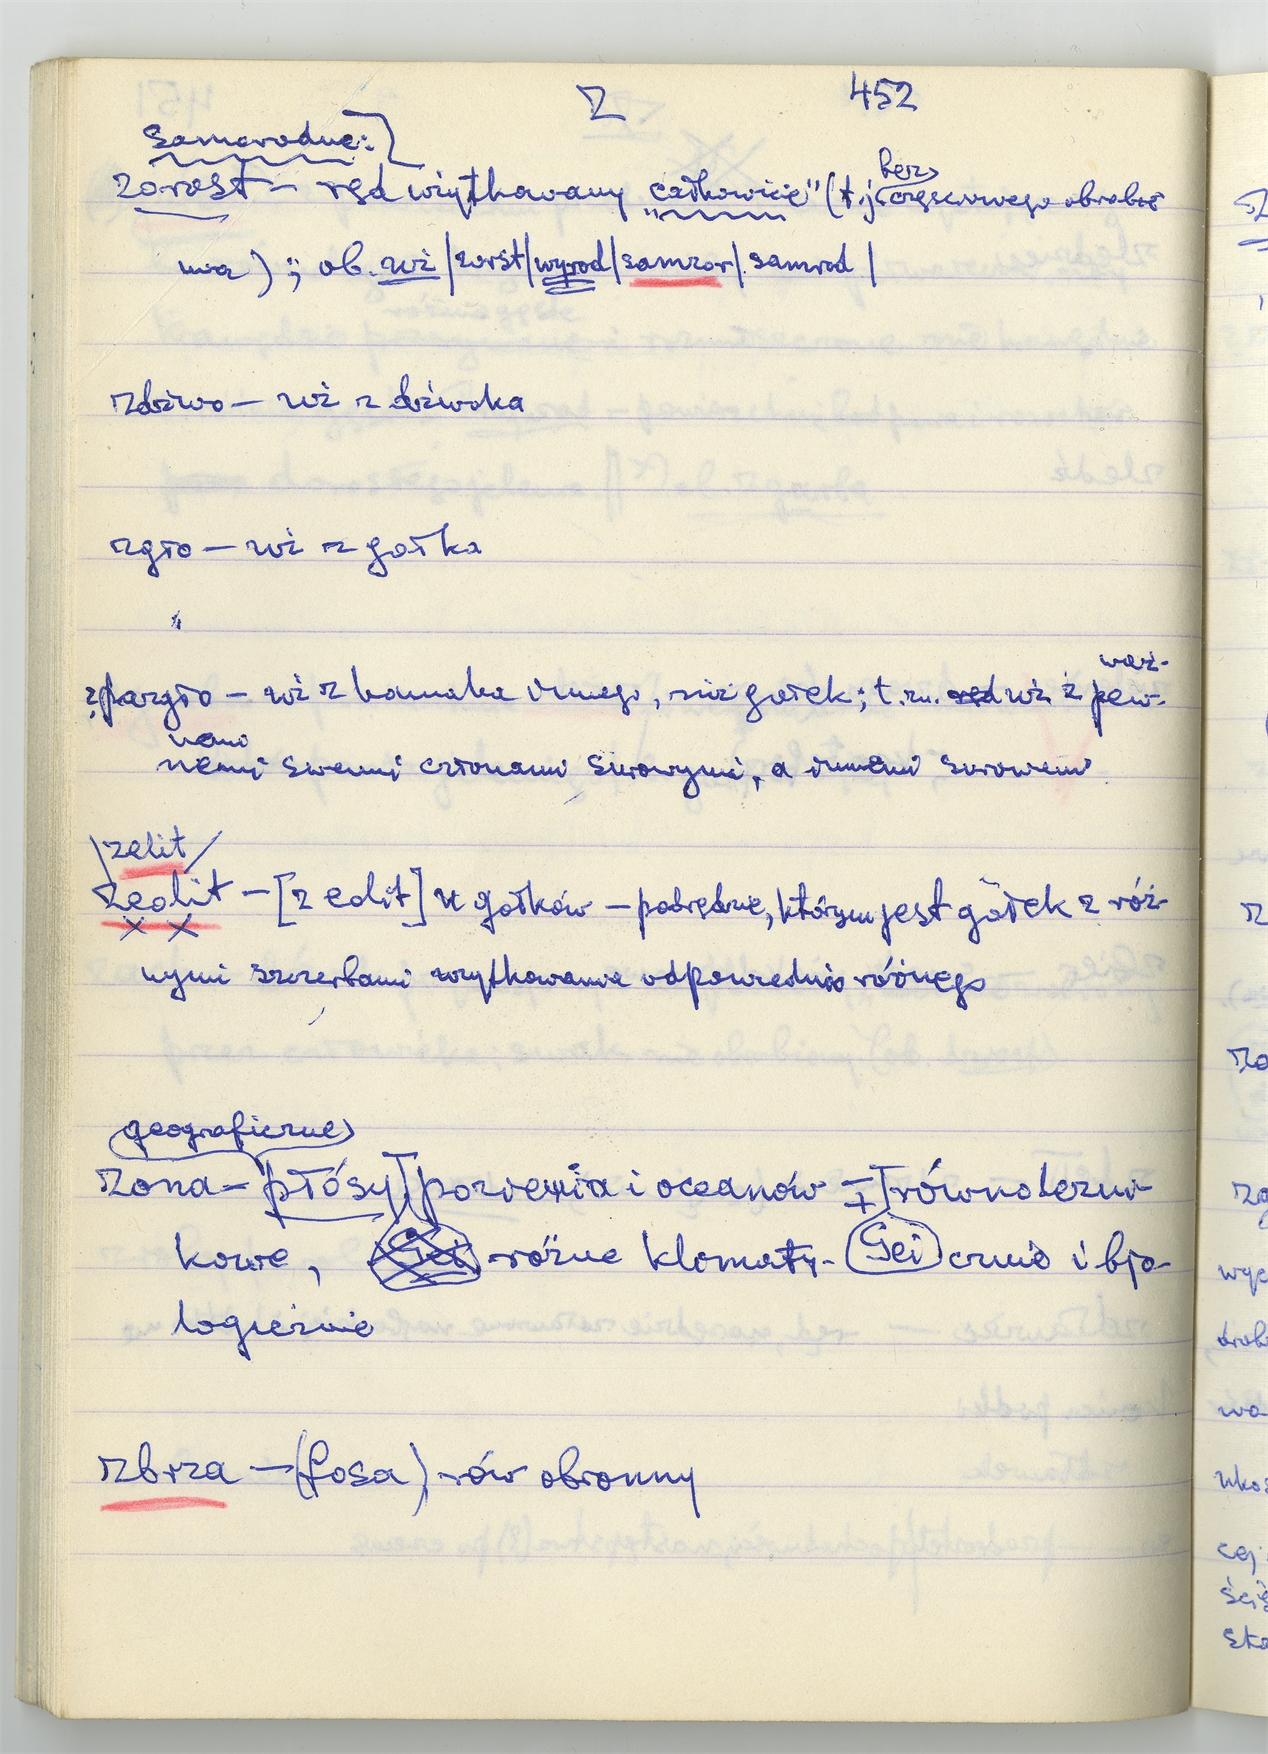 Z 452
samorodne:
zorost – ręd wżytkowany „całkowicie" (t.j. bez częściowego obrobie
nia); ob. wż |zorst|wyrod|samzor| samrod |
zdziwo – wż z dziwoka
zgło – wż z gołka
– wż z kamaka innego, niż gołek; t.zn. wż z pew-
waż-
nemi swemi członami surowymi, a innemi surowemi
nemi
\zelit/
zeolit – [z eolit] u gołków – podrędne, którym jest gołek z róż-
nymi szczerbami wżytkowania odpowiednio różnego
geograficzne
zona – płósy poziemia i oceanów ± równoleżni-
kowe, różne klimaty- Sei cznie i bjo-
logicznie
zbrza – (fosa) rów obronny